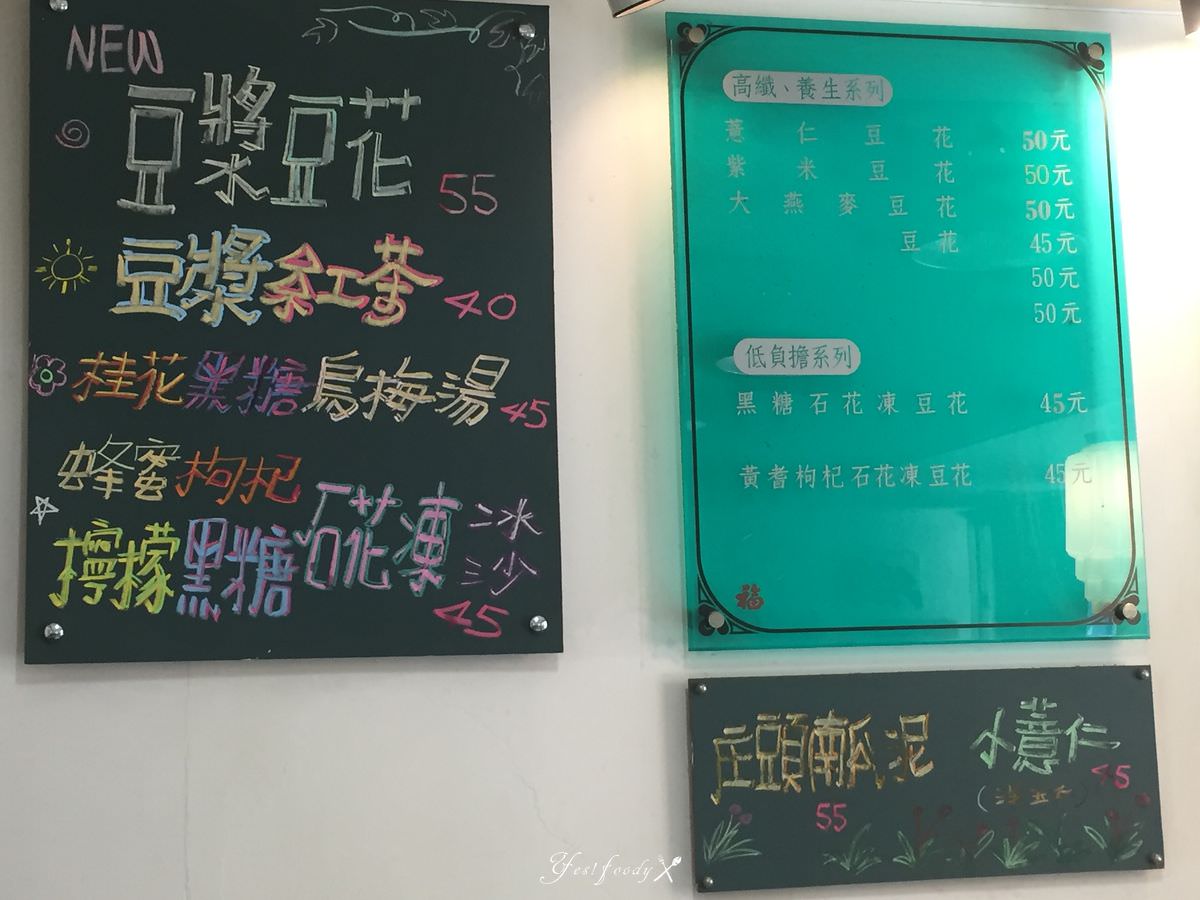 NEW
豆漿豆花 55
豆漿紅茶 40
桂花黑糖烏梅湯 45
蜂蜜枸杞
檸檬黑糖石花凍冰沙
45
高纖、養生系列
薏仁豆花 50元
紫米豆花 50元
大燕麥豆花 50元
豆花 45元
50元
50元
低負擔系列
黑糖石花凍豆花 45元
黃耆枸杞石花凍豆花 45元
福
庄頭南瓜泥 55
小薏仁 45
Yestfoody